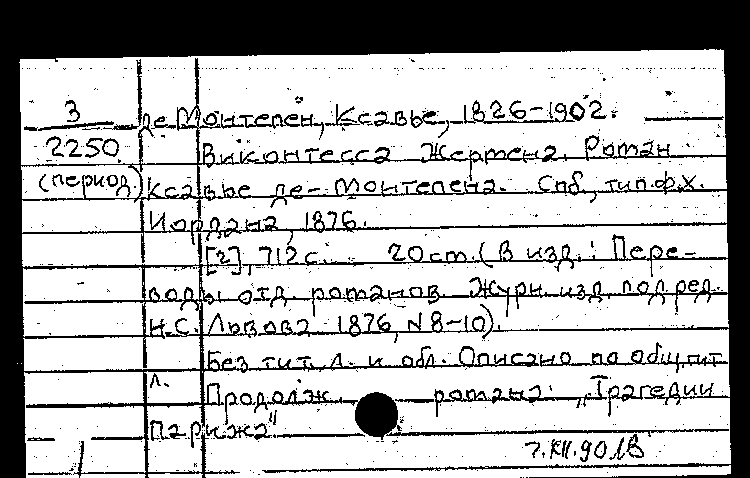 3
2250
(период)
де Монтепен, Ксавье, 1826-1902.
Виконтесса Жермена. Роман
Ксавье де-Монтепена. Спб, тип.ф.х.
Иордана, 1876.
[2], 712 с. 20 см. (В изд.: Пере-
воды отд. романов. Журн. изд. под ред.
Н.С. Львова 1876, N 8-10).
Без тит. л. и обл. Описано по общ. тит.
л.
Продолж. романа: „Трагедии
Парижа"
7.XII.90